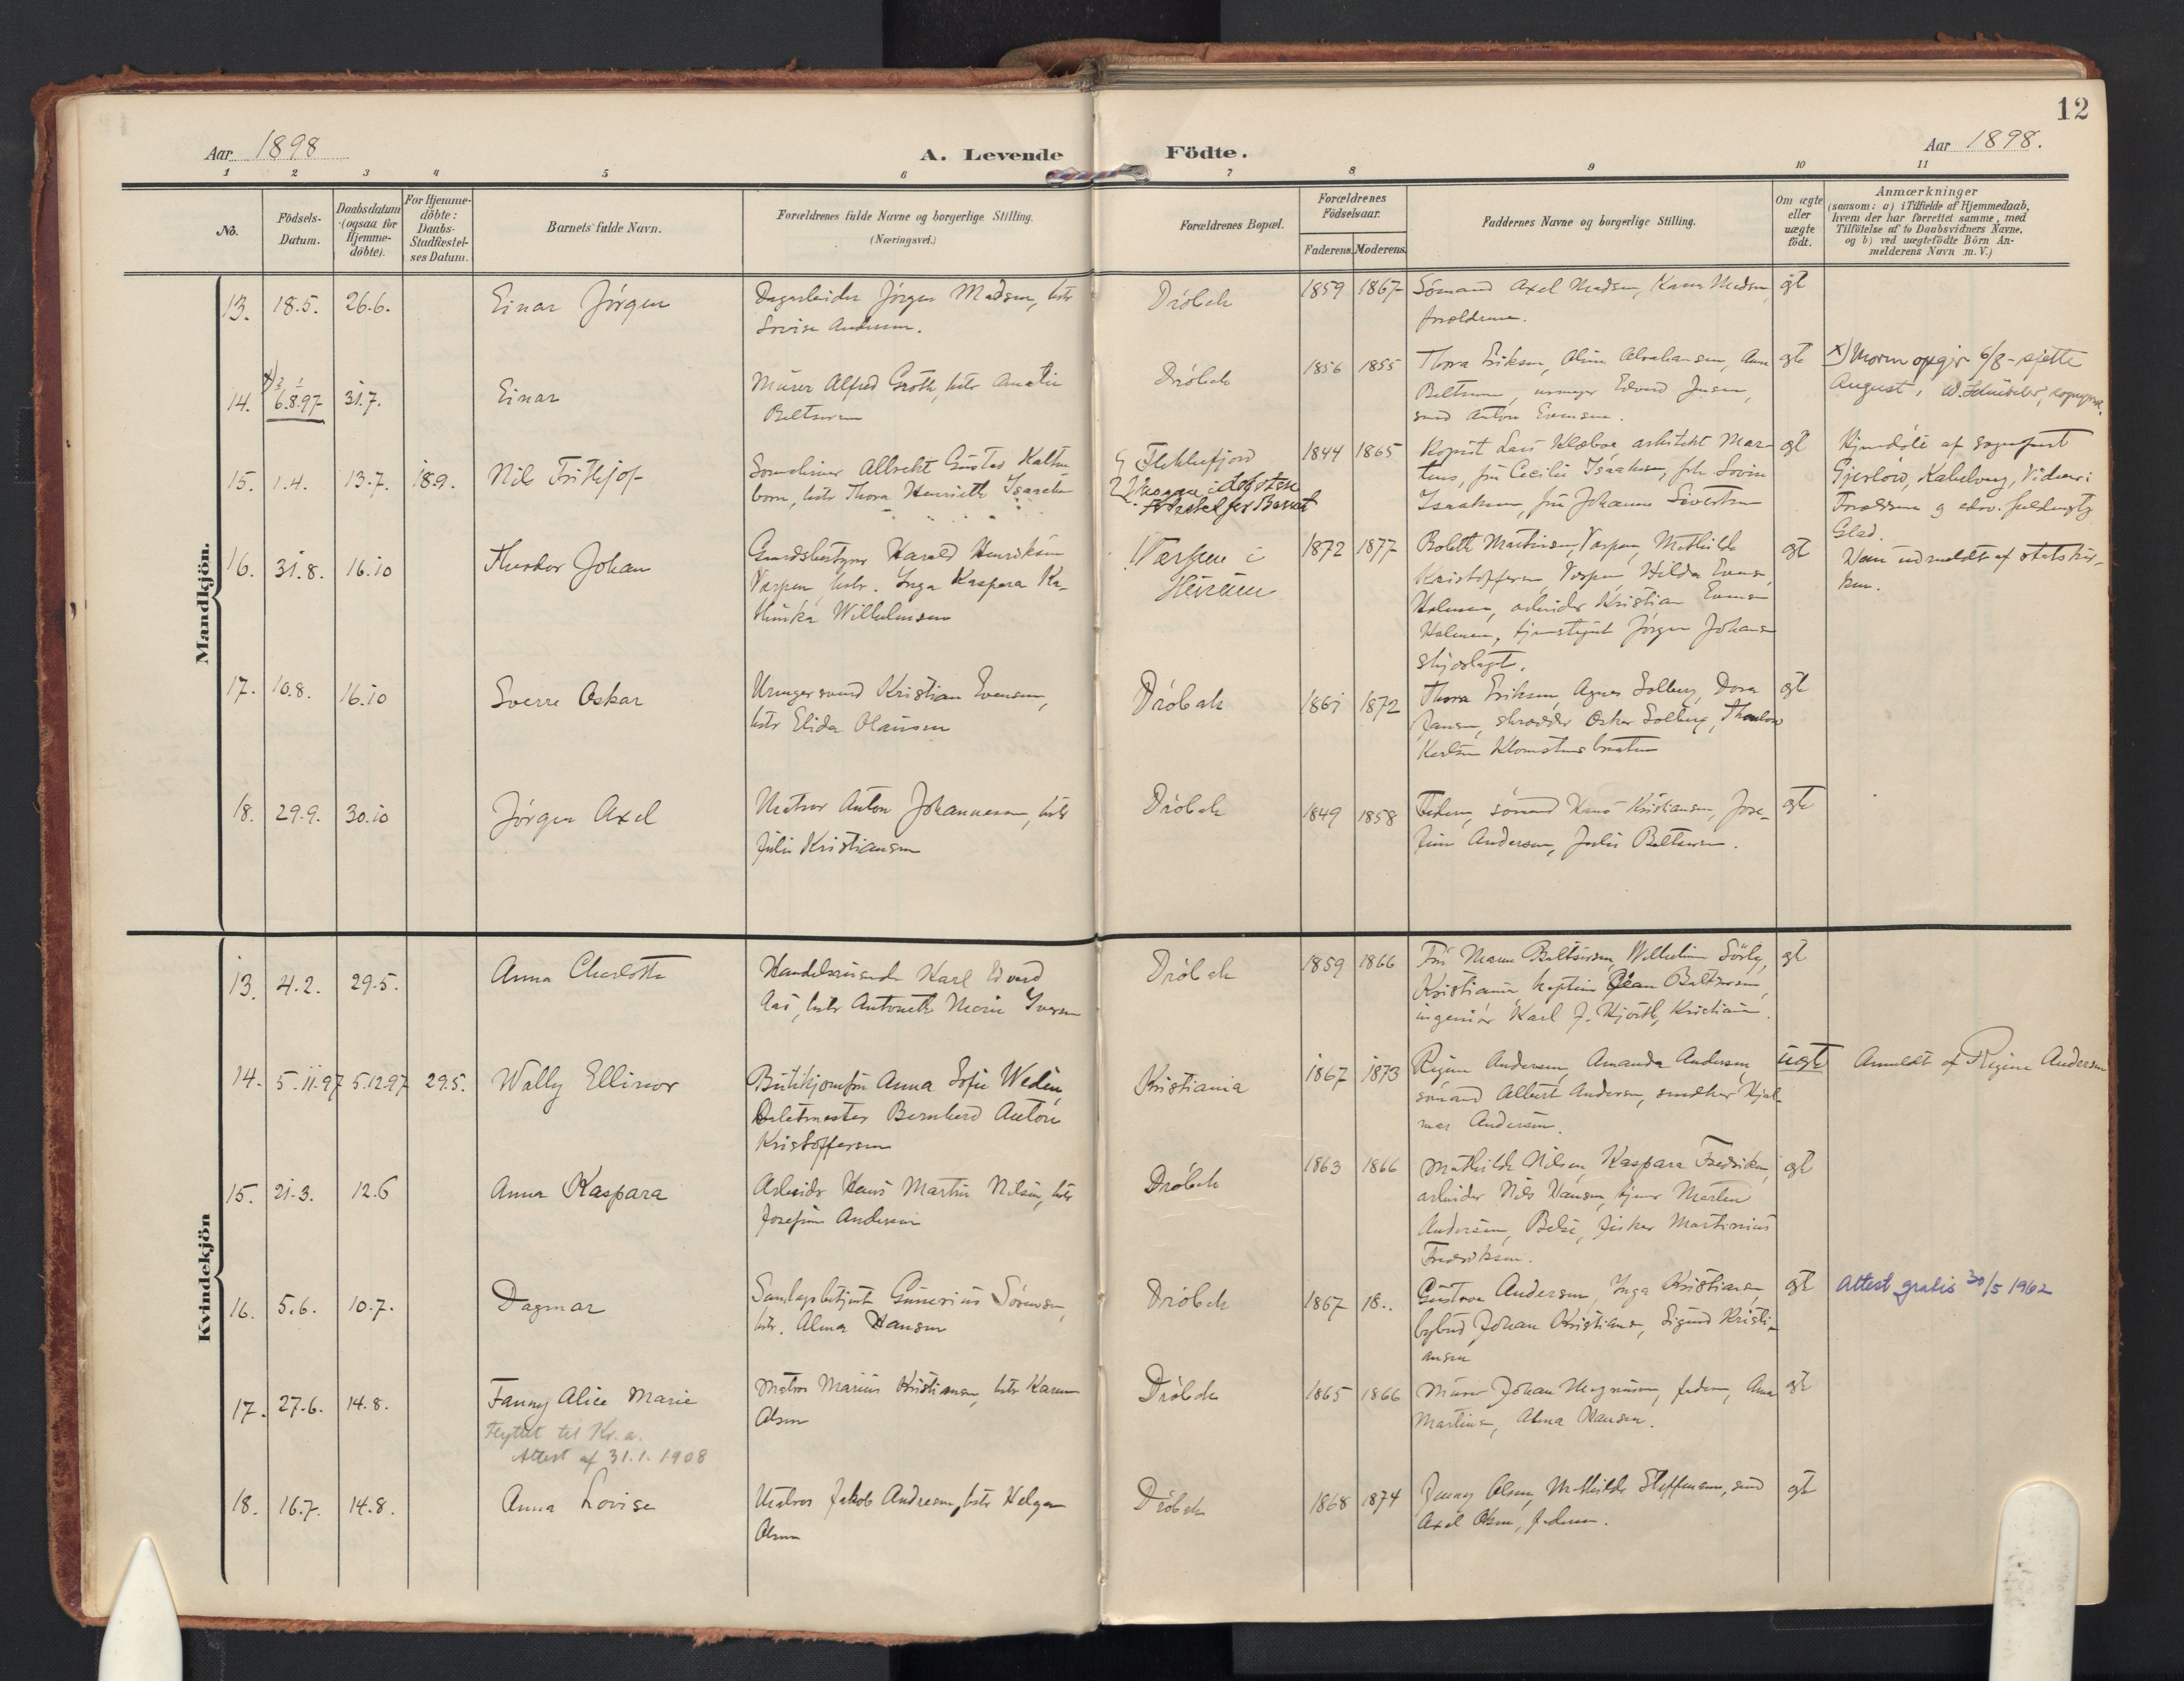 12
Aar 1898
A. Levende Födte.
Aar 1898.
1 2 3 4 5 6 7 8 9 10 11
No.
Födsels-
Datum.
Daabsdatum
(ogsaa for
Hjemme-
döbte).
For Hjemme-
döbte:
Daabs-
Stadfæstel-
ses Datum.
Barnets fulde Navn.
Forældrenes fulde Navne og borgerlige Stilling.
(Næringsvei.)
Forældrenes Bopæl.
Forældrenes
Födselsaar.
Faderens. Moderens.
Faddernes Navne og borgerlige Stilling.
Om ægte
eller
uægte
födt.
Anmærkninger
(saasom: a) i Tilfælde af Hjemmedaab,
hvem der har forrettet samme, med
Tilföielse af to Daabsvidners Navne,
og b) ved uægtefödte Börn An-
melderens Navn m. V.)
Mandkjön.
13. 18.5. 26.6. Einar Jörgen
Dagarbeider Jörgen Madsen, hstr
Lovise Andersen.
Dröbak 1859 1867
Sömand Axel Madsen, Karen Madsen,
forældrene.
gt
14. 6.8.97 31.7. Einar
Murer Alfred Groth, hstr Amalie
Beltsersen
Dröbak 1856 1855
Thora Eriksen, Anna
urmager Edvard Jensen,
smed Anton Evensen.
gte
x) Moren opgir 6/8 - sjette
August,
15. 1.4. 13.7. 18.9. Nils Frithjof
Albrecht Gustav
born, hstr Thora Henriette Isaachsen
Flekkefjord
1844 1865
Lars Klæboe arkitekt Mar-
tens, fru Cecilie Isaachsen, frk Lovise
Isaachsen, fru Johanne Sivertsen
gt
Hjemdöbt af sognepræst
Gjerlöw, Kabelvaag, Vidner:
Forældrene og
Glad.
16. 31.8. 16.10 Theodor Johan
Gaardsbestyrer Harald Henriksen
Vaspen, hstr. Inga Kaspara Ka-
thinka Wilhelmsen
Værpen i
Hurum
1872 1877
Bolette Martinsen, Vaspen, Mathilde
Kristoffersen, Vaspen, Hilda Evensen,
Holmen, arbeider Kristian Evensen
Holmen, tjenestegut Jörgen Johansen
gt
Var udmeldt af statskir-
ken.
17. 10.8. 16.10 Sverre Oskar
Kristian Evensen,
hstr Elida Olausen
Dröbak 1861 1872
Thora Eriksen, Agnes Solberg, Dora
Jansen, skrædder Oskar Solberg,
Karlsen
gte
18. 29.9. 30.10 Jörgen Axel
Matros Anton Johannesen, hstr
Julie Kristiansen
Dröbak 1849 1858
Faderen, sömand Hans Kristiansen, Jose-
fine Andersen, Julie Beltsersen.
gte
Kvindekjön
13. 4.2. 29.5. Anna Charlotte
Handelsreisende Karl Edvard
Aas, hstr Antonette Marie Iversen
Dröbak 1859 1866
Fru Maren Beltsersen, Wilhelmine Sörby,
Kristiania, kaptein Beltsersen,
ingeniör Karl J. Hjorth, Kristiania.
gt
14. 5.11.97 5.12.97 29.5. Wally Ellinor
Butikjomfru Anna Sofie Wedin,
Bernhard Anton
Kristoffersen
Kristiania 1867 1873
Regine Andersen, Amanda Andersen,
sömand Albert Andersen, Hjal-
mar Andersen.
uægte
Anmeldt af Regine Andersen
15. 21.3. 12.6 Anna Kaspara
Arbeider Hans Martin Nilsen, hstr
Josefine Andersen
Dröbak 1863 1866
Mathilde Nilsen, Kaspara Fredriksen,
arbeider Nils Hansen, Martin
Andersen, fisker Martinius
Fredriksen.
gt
16. 5.6. 10.7. Dagmar
Samlagsbetjent Gunerius Sörensen,
hstr. Alma Hansen
Dröbak 1867 18..
Gustava Andersen, Inga Kristiansen,
bybud Johan Kristiansen, Sigurd Kristi-
ansen
gt
Attest gratis 30/5 1962
17. 27.6. 14.8. Fanny Alice Marie
Flyttet til Kr.a.
Attest af 31.1.1908
Matros Marius Kristiansen, hstr Karen
Olsen
Dröbak 1865 1866
Murer Johan Magnusen, faderen, Anna
Martinsen, Alma Hansen.
gte
18. 16.7. 14.8. Anna Lovise
Matros Jakob Andresen, hstr Helga
Olsen
Dröbak 1868 1874
Jenny Olsen, Mathilde Steffensen, smed
Axel Olsen, faderen.
gte